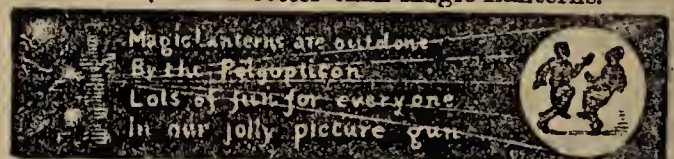 better than Magic Lanterns.
Magic Lanterns are outdone
By the Polyopticon
Lots of fun for everyone
In our jolly picture gun